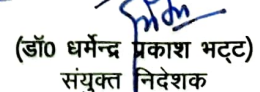 (डॉ0 धर्मेन्द्र प्रकाश भट्ट)
संयुक्त निदेशक